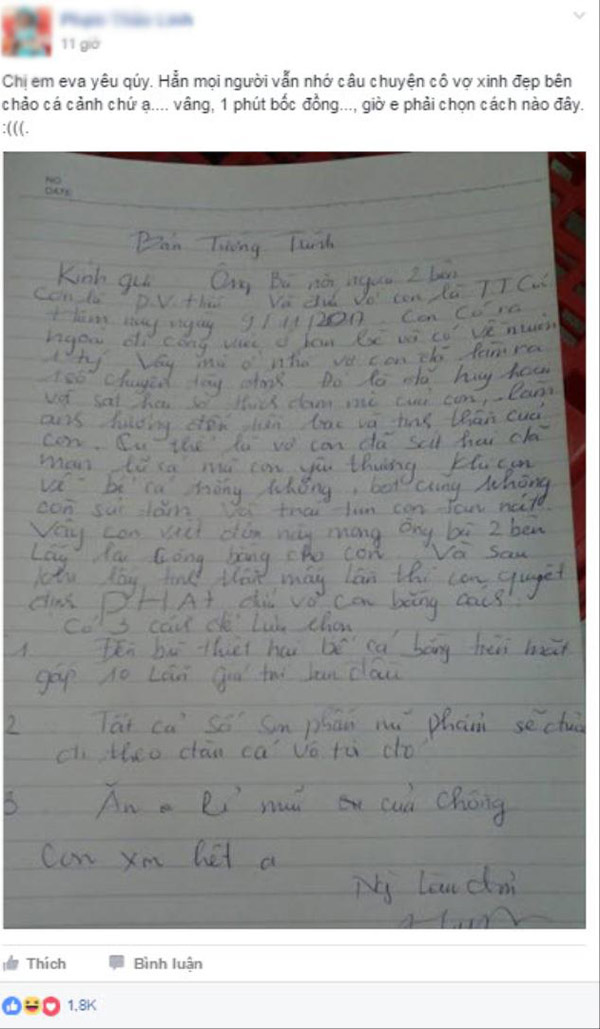 11 giờ
Chị em eva yêu qúy. Hẳn mọi người vẫn nhớ câu chuyện cô vợ xinh đẹp bên
chảo cá cảnh chứ ạ.... vâng, 1 phút bốc đồng..., giờ e phải chọn cách nào đây.
:(((.
NO
DATE
Bản Tường Trình
Kính gửi Ông Bà nội ngoại 2 bên
Con là D.V. Và chú vợ con là TT
Hôm nay ngày 9/11/2017 Con có ra
ngoài đi công việc và có về muộn
1 tý Vậy mà ở nhà vợ con đã làm ra
chuyện tày đình Đó là đã hủy hoại
và sát hại sở thích đam mê của con, làm
ảnh hưởng đến tiền bạc và tinh thần của
con. Cụ thể là vợ con đã sát hại dã
man lũ cá mà con yêu thương Khi con
về bể cá trống không, bot cũng không
còn sủi tăm Và trái tim con tan nát
Vậy con viết đơn này mong ông bà 2 bên
Lấy lại công bằng cho con Và sau
lấy tinh thần mấy lần thì con quyết
định PHẠT vợ con bằng cách
Có 3 cách để lựa chọn
1 Đền bù thiệt hại bể cá bằng tiền mặt
gấp 10 Lần giá trị ban đầu
2 Tất cả số son phấn mĩ phẩm sẽ
đi theo đàn cá vô tù đó
3 Ăn mũ của chồng
Con xin hết ạ
Ng Làm đơn
Thích Bình luận
1,8K